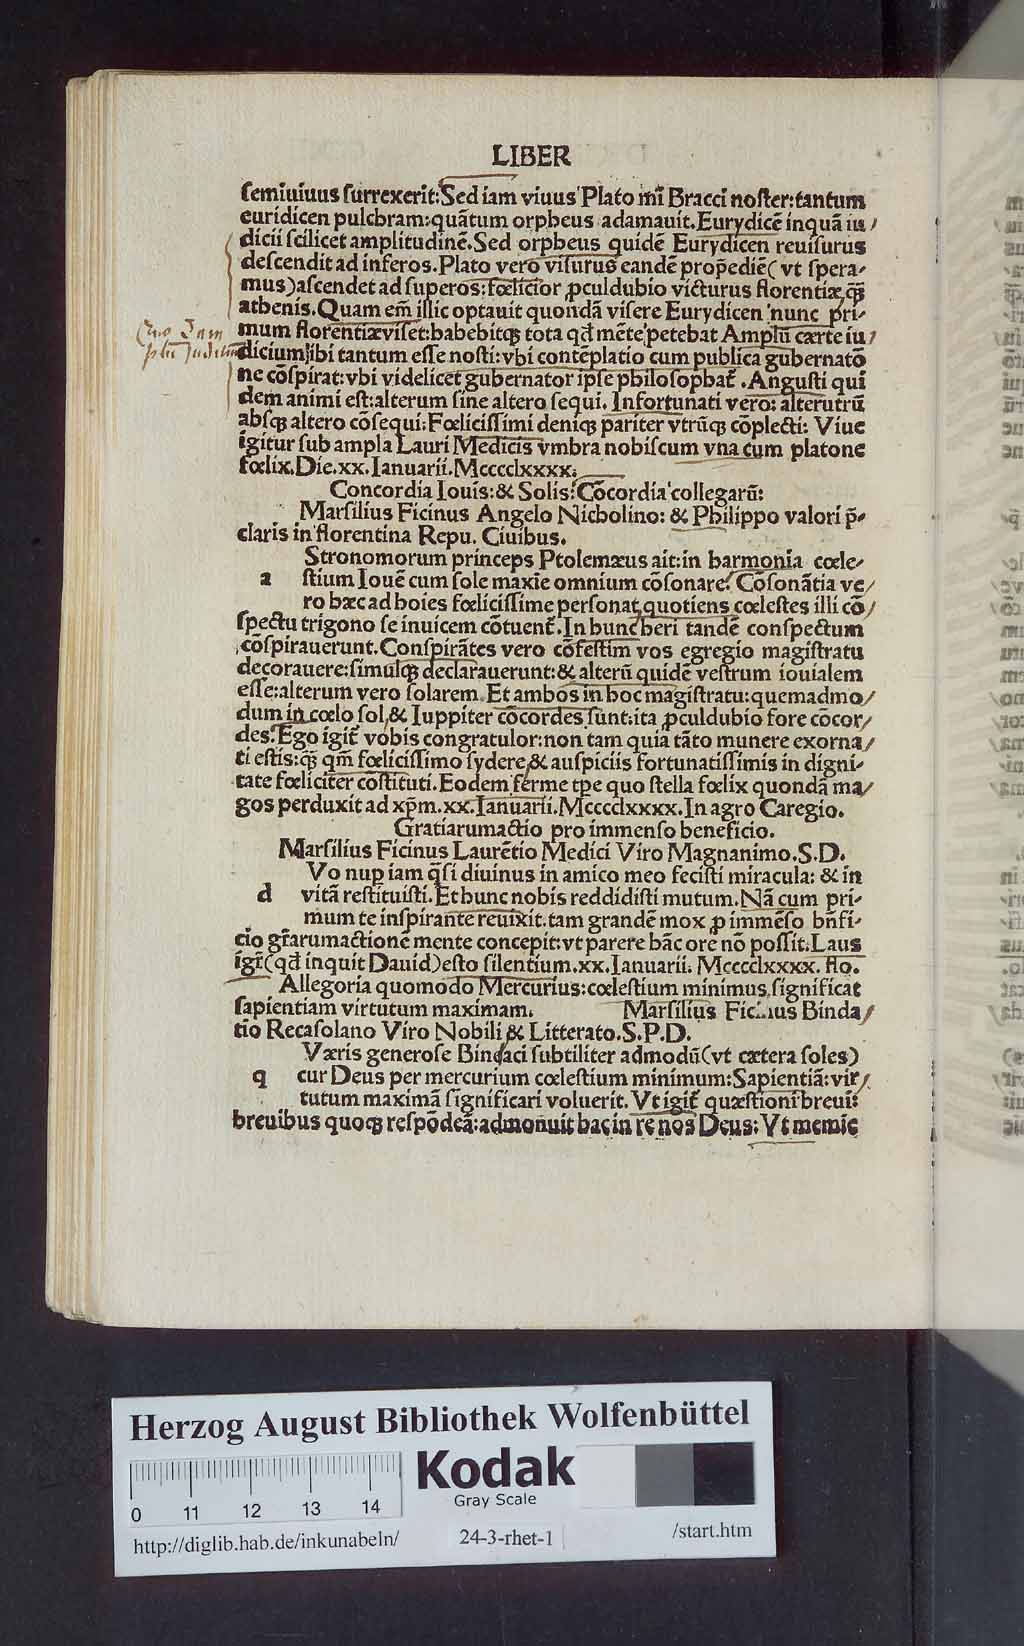 LIBER
semiuiuus surrexerit: Sed iam viuus Plato mī Bracci noster: tantum
euridicen pulchram: quātum orpheus adamauit. Eurydicē inquā iu/
dicii scilicet amplitudinē. Sed orpheus quidē Eurydicen reuisurus
descendit ad inferos. Plato vero visurus eandē prop̄ediē (vt spera-
mus) ascendet ad superos: fœlicior ꝓculdubio victurus florentiæ, q̄ꝫ
athenis. Quam em̄ illic optauit quondā visere Eurydicen nunc pri-
mum florentiæ viset: habebitqꝫ tota qd̄ mēte petebat Amplū cærte iu/
dicium ibi tantum esse nosti: vbi contēplatio cum publica gubernatō
ne cōspirat: vbi videlicet gubernator ipse philosophat̄. Angusti qui
dem animi est: alterum sine altero sequi. Infortunati vero: alterutrū
absqꝫ altero cōsequi: Fœlicissimi deniqꝫ pariter vtrūqꝫ cōplecti: Viue
igitur sub ampla Lauri Medicis vmbra nobiscum vna cum platone
fœlix. Die. xx. Ianuarii. Mcccclxxxx.
Concordia Iouis: & Solis: Cōcordia collegarū:
Marsilius Ficinus Angelo Nicholino: & Philippo valori p̄-
claris in florentina Repu. Ciuibus.
Stronomorum princeps Ptolemæus ait: in harmonia cœle-
a stium Iouē cum sole maxīe omnium cōsonare. Cōsonātia ve/
ro hæc ad hoīes fœlicissime personat, quotiens cœlestes illi cō/
spectu trigono se inuicem cōtuent̄. In hunc heri tandē conspectum
cōspirauerunt. Conspirātes vero cōfestim vos egregio magistratu
decorauere: simulqꝫ declarauerunt: & alterū quidē vestrum iouialem
esse: alterum vero solarem. Et ambos in hoc magistratu: quemadmo/
dum in cœlo sol, & Iuppiter cōcordes sunt: ita ꝓculdubio fore cōcor/
des. Ego igit̄ vobis congratulor: non tam quia tāto munere exorna/
ti estis: q̄ꝫ qm̄ fœlicissimo sydere, & auspiciis fortunatissimis in digni-
tate fœliciter cōstituti. Eodem ferme tp̄e quo stella fœlix quondā ma/
gos perduxit ad xp̄m. xx. Ianuarii. Mcccclxxxx. In agro Caregio.
Gratiarumactio pro immenso beneficio.
Marsilius Ficinus Laurētio Medici Viro Magnanimo. S. D.
Vo nup iam q̄si diuinus in amico meo fecisti miracula: & in
d vitā restituisti. Et hunc nobis reddidisti mutum. Nā cum pri-
mum te inspirante reuixit. tam grandē mox ꝓ immēso bn̄fi-
cio gr̄arumactionē mente concepit: vt parere hāc ore nō possit. Laus
igr̄ (qd̄ inquit Dauid) esto silentium. xx. Ianuarii. Mcccclxxxx. flo.
Allegoria quomodo Mercurius: cœlestium minimus, significat
sapientiam virtutum maximam. Marsilius Ficinus Binda/
tio Recasolano Viro Nobili & Litterato. S. P. D.
Væris generose Bindaci subtiliter admodū (vt cætera soles)
q cur Deus per mercurium cœlestium minimum: Sapientiā: vir/
tutum maximā significari voluerit. Vt igit̄ quæstioni breui:
breuibus quoqꝫ respōdeā: admonuit hac in re nos Deus: Vt memīe
Herzog August Bibliothek Wolfenbüttel
0 11 12 13 14
Kodak
Gray Scale
http://diglib.hab.de/inkunabeln/ 24-3-rhet-1 /start.htm